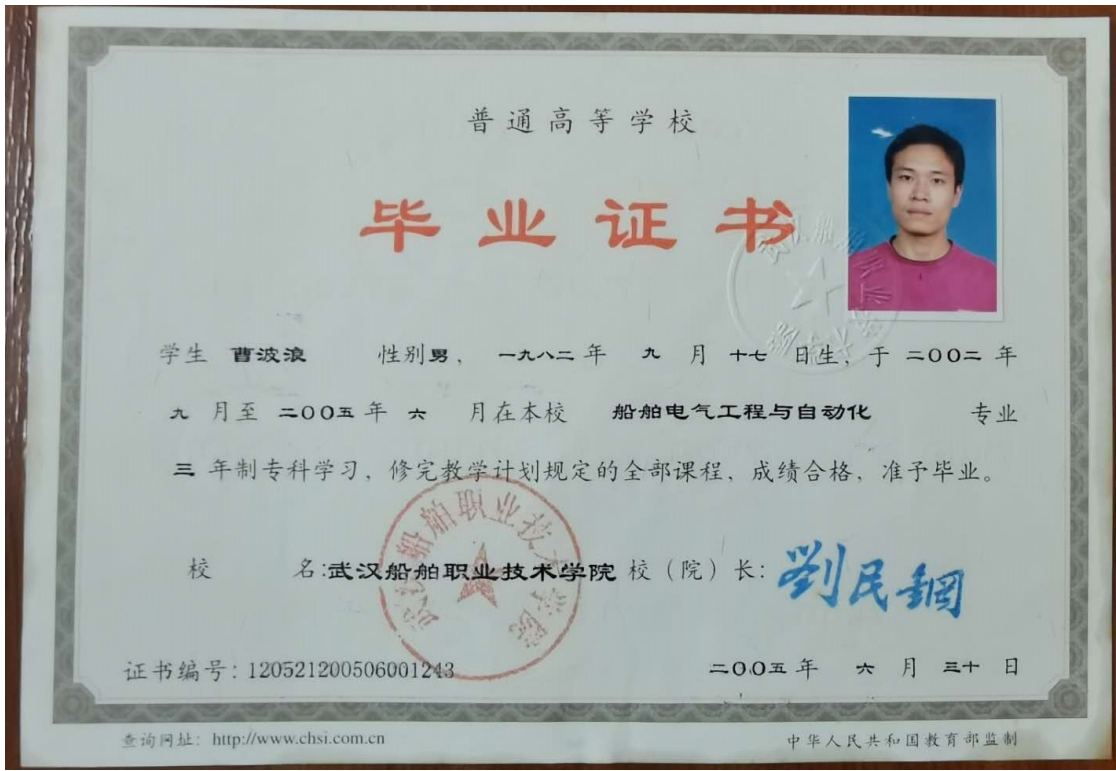 普通高等学校
毕业证书
学生 曹波浪 性别男, 一九八二年 九 月 十七 日生, 于 二〇〇二 年
九 月至 二〇〇五年 六 月在本校 船舶电气工程与自动化 专业
三 年制专科学习, 修完教学计划规定的全部课程, 成绩合格, 准予毕业。
武汉船舶职业技术学院
校 名:武汉船舶职业技术学院 校（院）长: 劉民鋼
证书编号: 120521200506001243 二〇〇五年 六 月 三十 日
查询网址: http://www.chsi.com.cn 中华人民共和国教育部监制